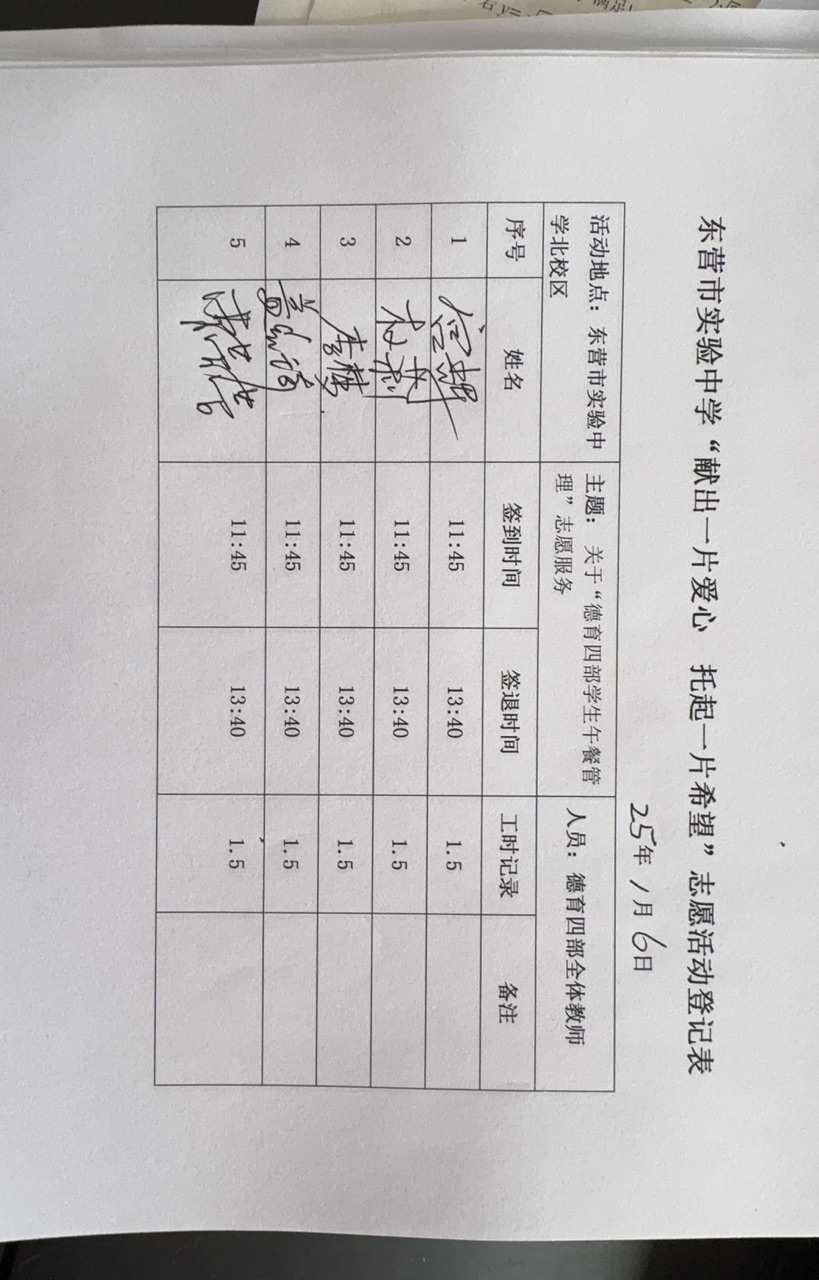 东营市实验中学“献出一片爱心 托起一片希望”志愿活动登记表
25年1月6日
活动地点：东营市实验中学北校区 主题： 关于“德育四部学生午餐管理”志愿服务 人员：德育四部全体教师
序号 姓名 签到时间 签退时间 工时记录 备注
1 11:45 13:40 1.5
2 11:45 13:40 1.5
3 李梦 11:45 13:40 1.5
4 11:45 13:40 1.5
5 11:45 13:40 1.5